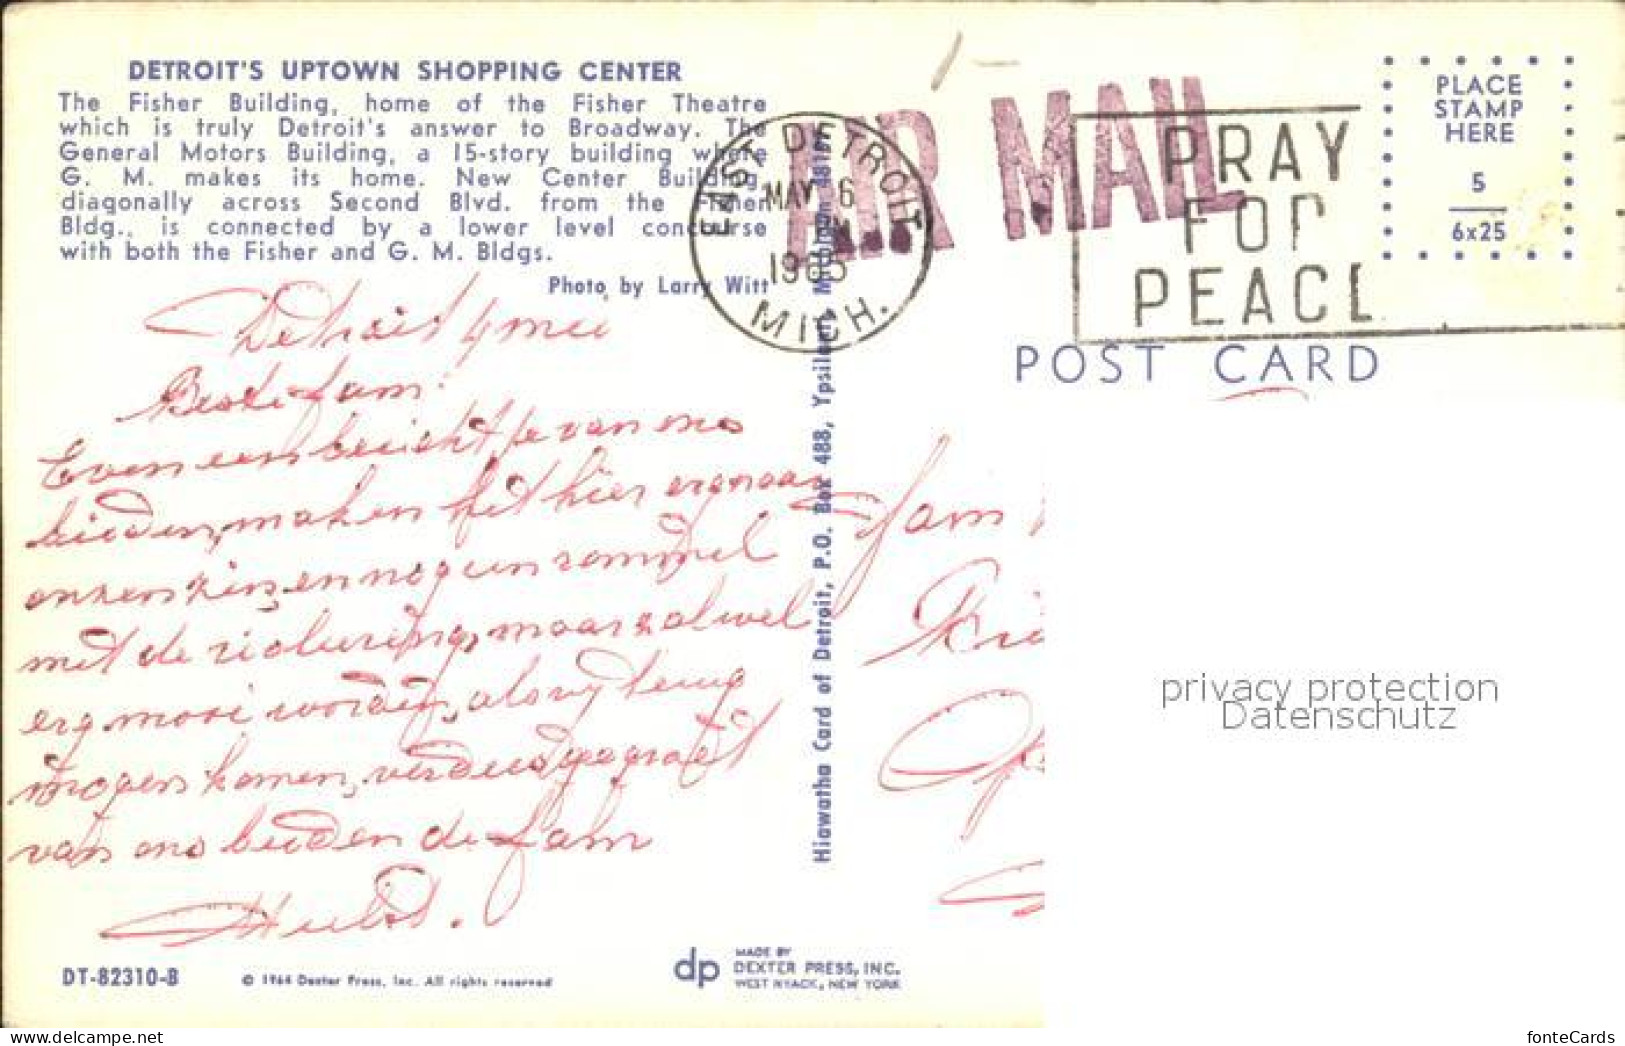 DETROIT'S UPTOWN SHOPPING CENTER
The Fisher Building, home of the Fisher Theatre
which is truly Detroit's answer to Broadway. The
General Motors Building, a 15-story building where
G. M. makes its home. New Center Building,
diagonally across Second Blvd. from the Fisher
Bldg., is connected by a lower level concourse
with both the Fisher and G. M. Bldgs.
Photo by Larry Witt
Detroit 4 mei
Beste fam.
Even een bericht je van ons
beiden, maken het hier erg naar
en nog een rommel
met de maar zal wel
erg mooi worden, als wij terug
mogen komen, verders gegroet
van ons beiden de fam
Hulst.
DT-82310-B
© 1964 Dexter Press, Inc. All rights reserved
dp
MADE BY
DEXTER PRESS, INC.
WEST NYACK, NEW YORK
Hiawatha Card of Detroit, P.O. Box 488, Ypsilanti, Michigan 48197
EAST DETROIT
MAY 6
1965
MICH.
AIR MAIL
PRAY
FOR
PEACE
PLACE
STAMP
HERE
5
6x25
POST CARD
fam
privacy protection
Datenschutz
https://www.delcampe.net
fonteCards